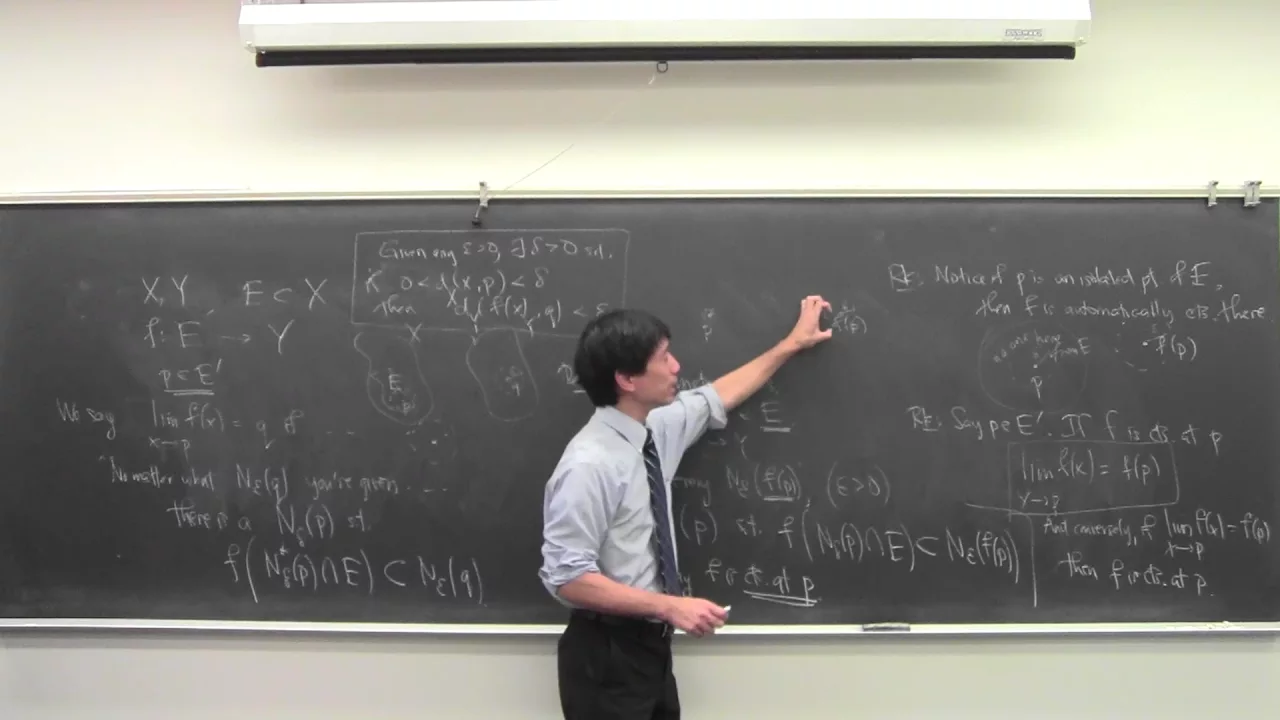 X, Y E ⊂ X
f: E → Y
p ∈ E'
We say lim f(x) = q if
x→p
No matter what N_ε(q) you're given ...
there is a N_δ(p) st.
f(N*_δ(p) ∩ E) ⊂ N_ε(q)
Given any ε>0, ∃ δ>0 st.
if 0 < d(x,p) < δ
then d(f(x), q) < ε
X Y
E
p
q
p
f(p)
E
Y
any N_ε(f(p)), (ε>0)
(p) st. f(N_δ(p) ∩ E) ⊂ N_ε(f(p))
f is cts. at p
Rk: Notice if p is an isolated pt of E,
then f is automatically cts. there
from E
p
f(p)
Rk: Say p ∈ E'. If f is cts. at p
lim f(x) = f(p)
x→p
And conversely, if lim f(x) = f(p)
x→p
then f is cts. at p.